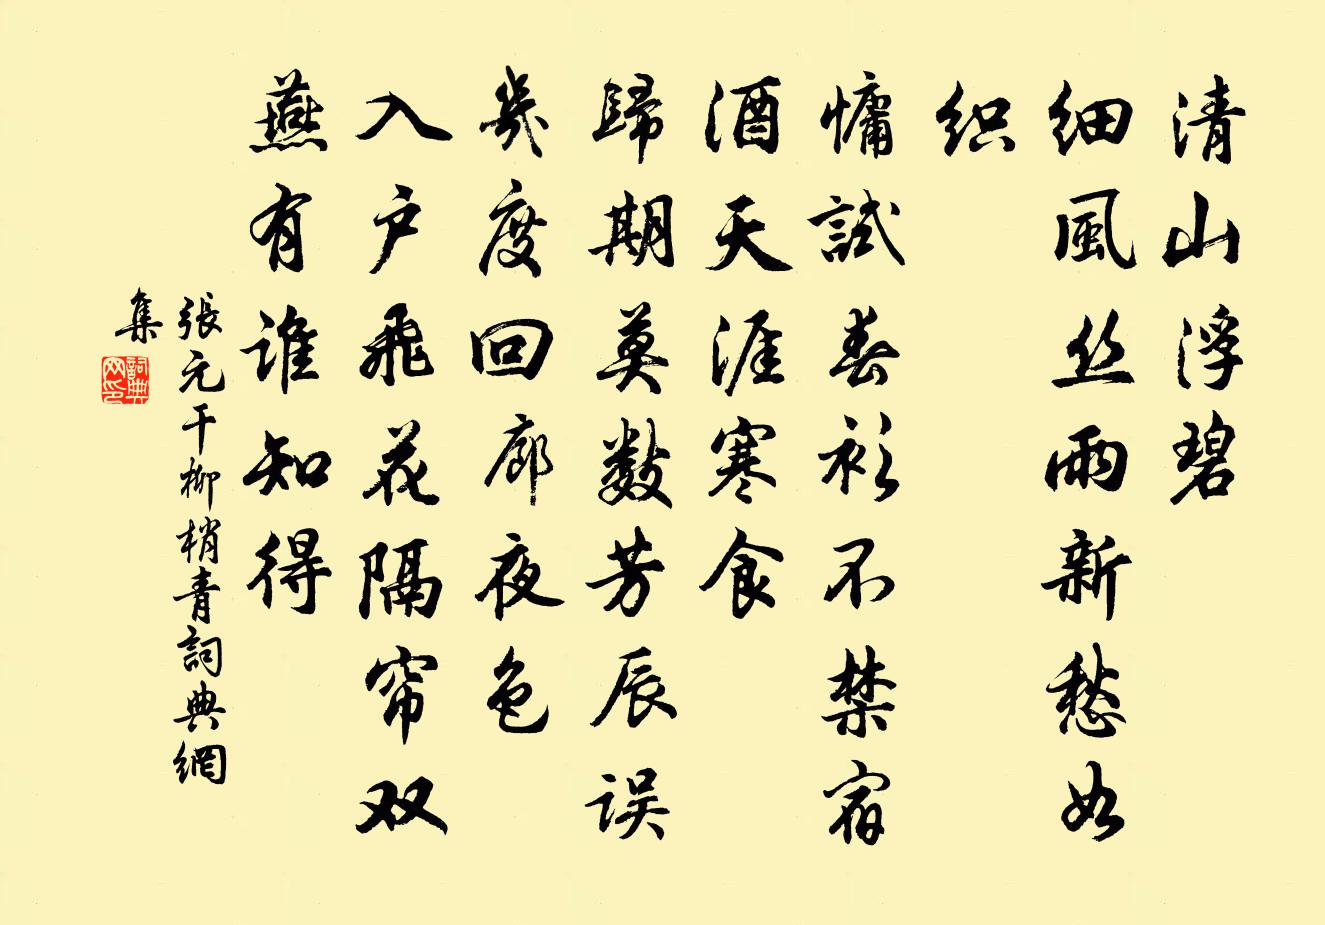 清山浮碧
细風丝雨新愁如
织
慵試春衫不禁宿
酒天涯寒食
歸期莫数芳辰误
幾度回廊夜色
入户飛花隔帘双
燕有谁知得
張元干柳梢青詞典網
集
詞典
网印